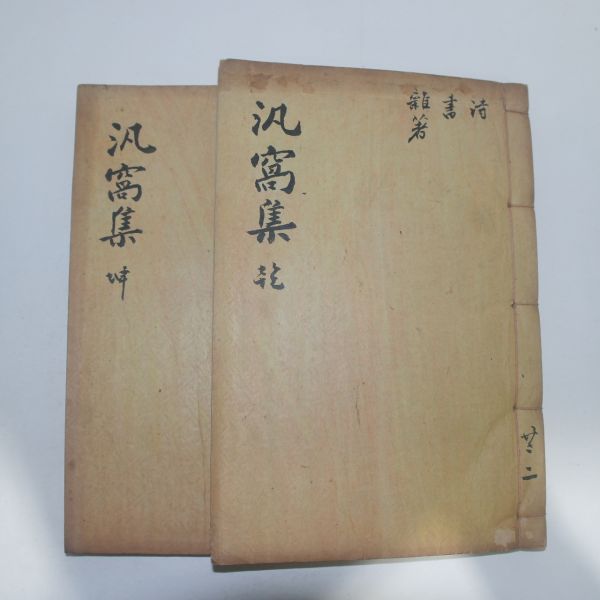 共二
詩
書
雜著
汎窩集 乾
汎窩集 坤